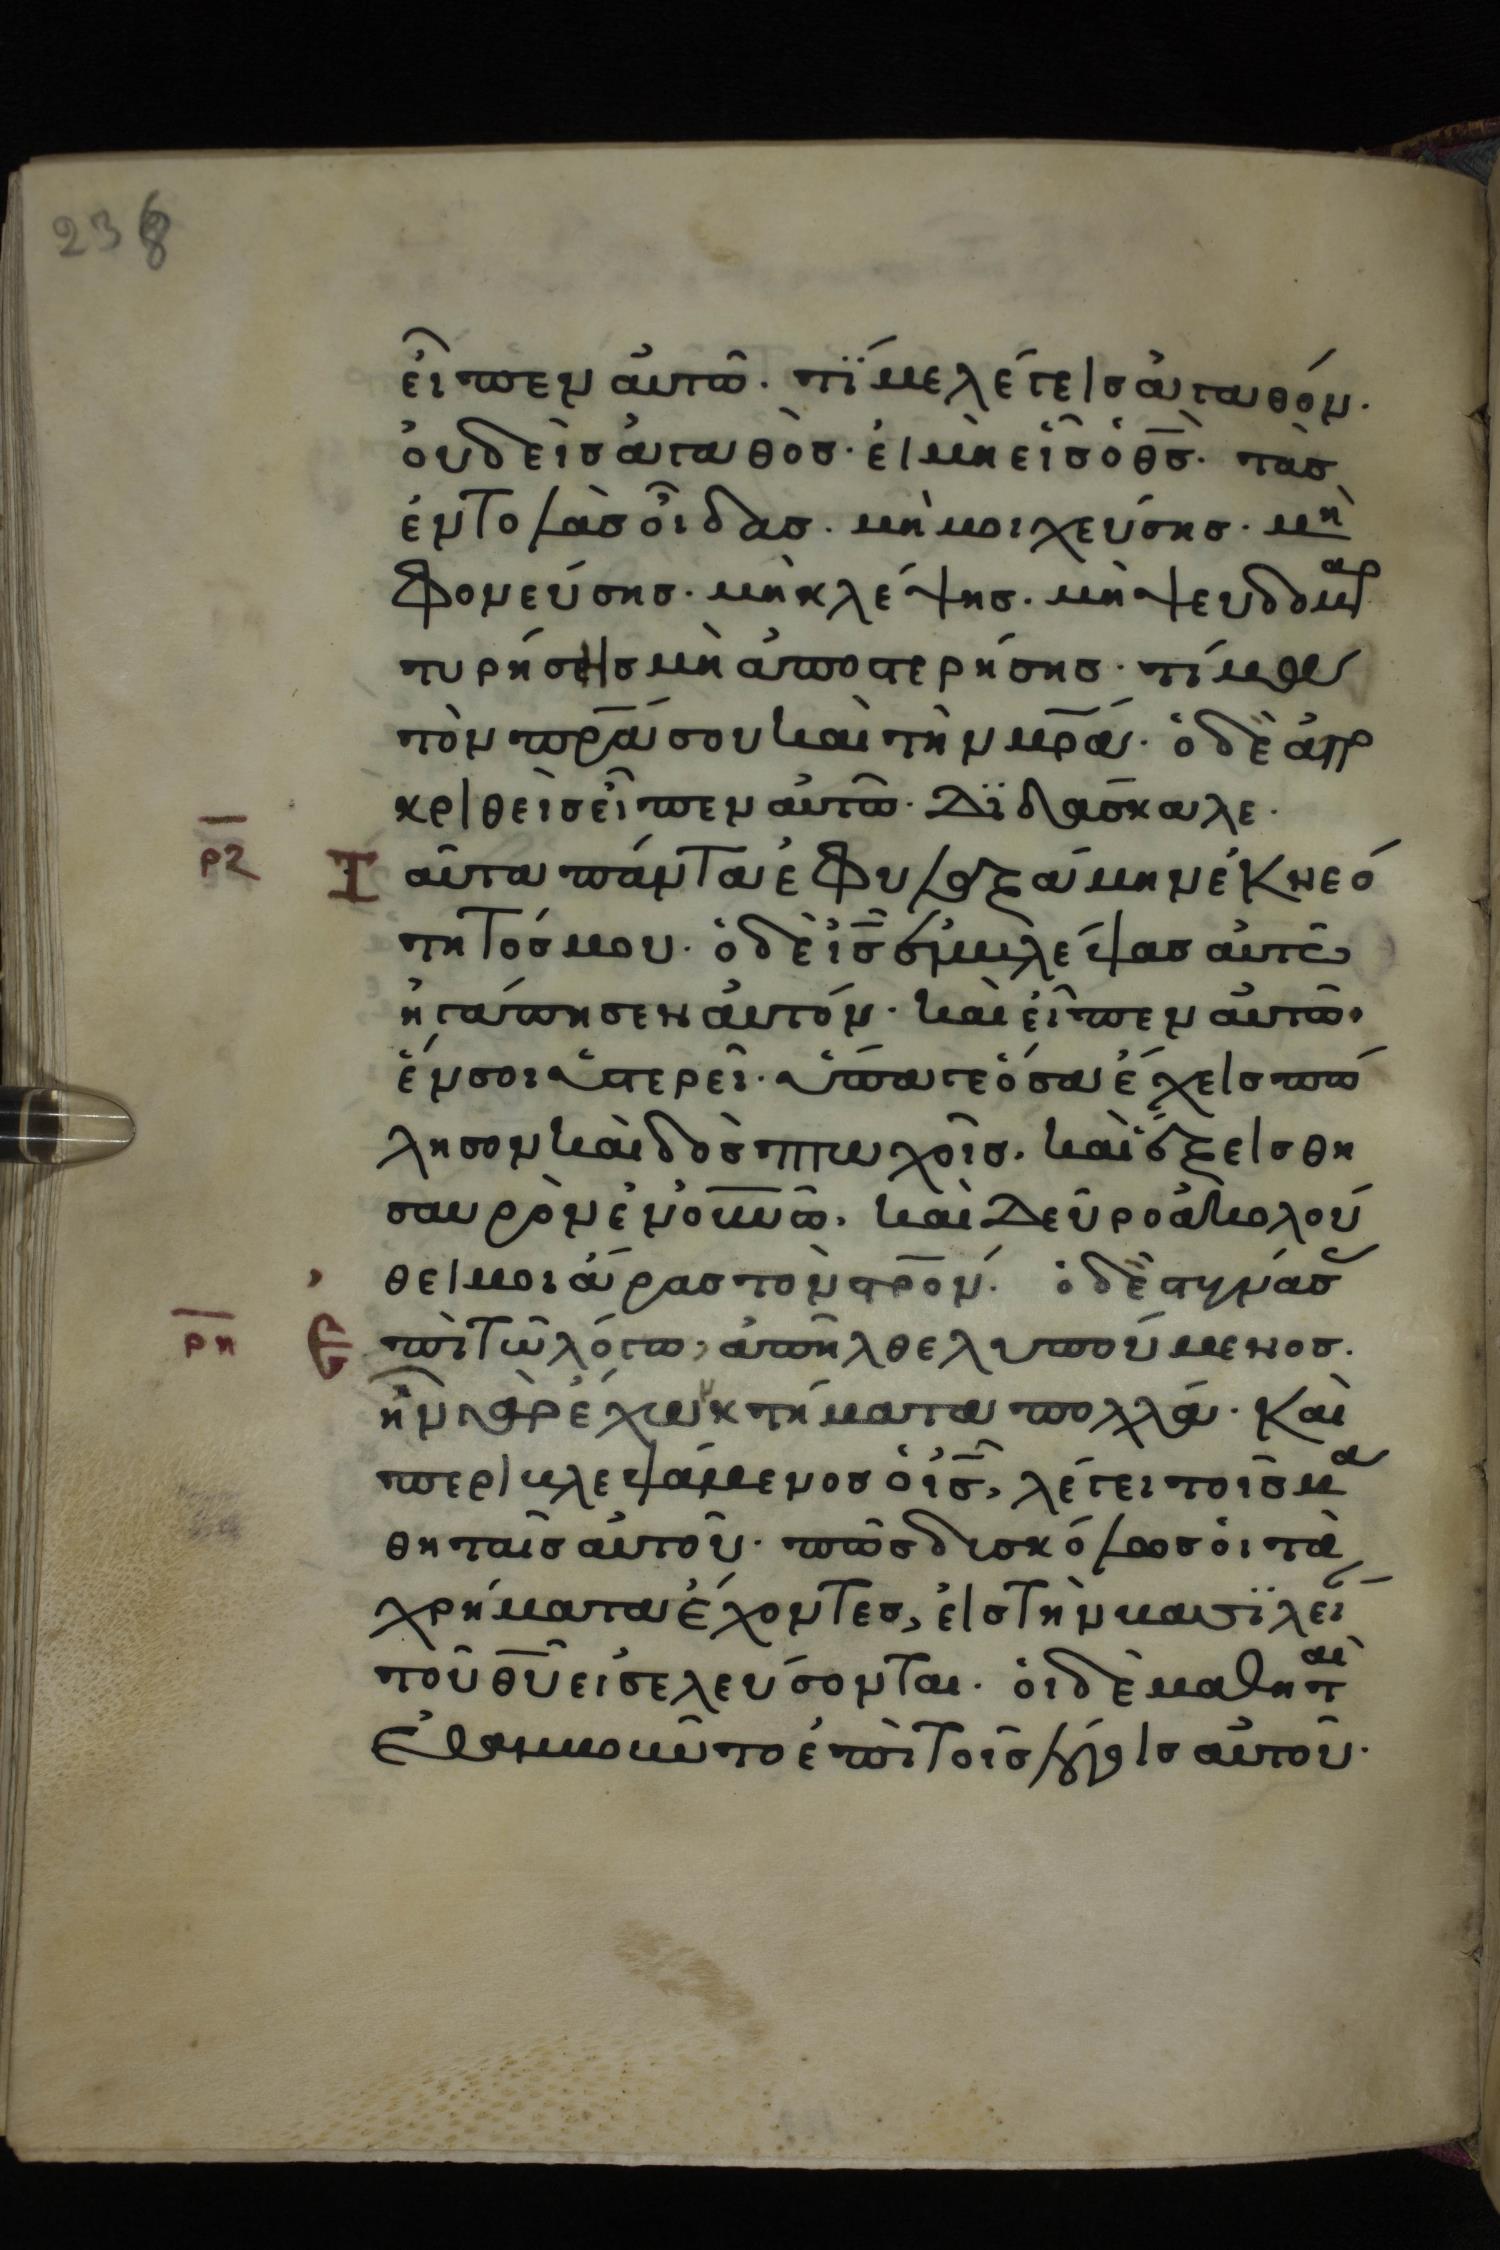 236
εἶπεν αὐτῶ· τί με λέγεις ἀγαθόν·
οὐδεὶς ἀγαθὸς· εἰ μὴ εἷς ὁ θ̅ς̅· τὰς
ἐντολὰς οἶδας· μὴ μοιχεύσης· μὴ
φονεύσης· μὴ κλέψης· μὴ ψευδομαρ
τυρήσης μὴ ἀποστερήσης· τίμα
τὸν π̅ρ̅α̅ σου καὶ τὴν μ̅ρ̅α̅· ὁ δὲ ἀπο
κριθεὶς εἶπεν αὐτῶ· Διδάσκαλε·
ρζ
Ταῦτα πάντα ἐφυλαξάμην ἐκ νεό
τητός μου· ὁ δὲ ι̅ς̅ ἐμβλέψας αὐτῶ
ἠγάπησεν αὐτόν· καὶ εἶπεν αὐτῶ·
ἕν σοι ὑστερεῖ· ὕπαγε ὅσα ἔχεις πώ
λησον καὶ δὸς πτωχοῖς· καὶ ἕξεις θη
σαυρὸν ἐν ο̅υ̅ν̅ω̅· καὶ Δεῦρο ἀκολού
θει μοι ἄρας τὸν σ̅ρ̅ο̅ν̅· ὁ δὲ στυγνάσας
ρη
Ἐπὶ τῶ λόγω, ἀπῆλθε λυπούμενος·
ἦν γὰρ ἔχων κτήματα πολλά· Καὶ
περιβλεψάμενος ὁ ι̅ς̅, λέγει τοῖς μα
θηταῖς αὐτοῦ· πῶς δυσκόλως οἱ τὰ
χρήματα ἔχοντες, εἰς τὴν βασϊλεί
τοῦ θ̅υ̅ εἰσελεύσονται· οἱ δὲ μαθηταὶ
ἐθαμβοῦντο ἐπὶ τοῖς λόγοις αὐτοῦ·